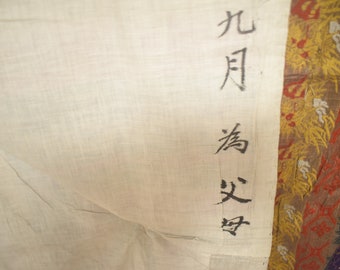 九月 為 父母